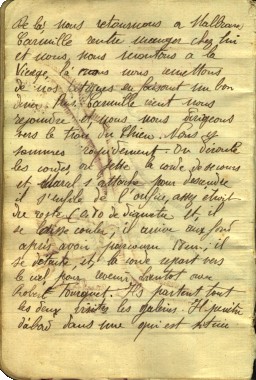 De là nous retournons à Malbosc
Camille rentre manger chez lui
et nous, nous montons à la
là nous nous mettons
de nos en faisant un bon
dîner. Puis Camille vient nous
rejoindre et nous nous dirigeons
vers le trou du Chien. Nous y
sommes rapidement. On déroule
les cordes on jette la corde de secours
et s'attache pour descendre
il s'enfile de l'orifice, assez étroit
de reste (0,70 de diamètre et, il
se laisse couler, il arrive au fond
après avoir parcouru 18m, il
se détache et la corde repart vers
le ciel pour revenir bientôt avec
Robert . Ils partent tout
les deux visiter les galeries. Il pénètre
d'abord dans une qui est